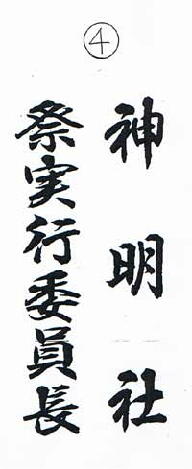 ④
神明社
祭実行委員長